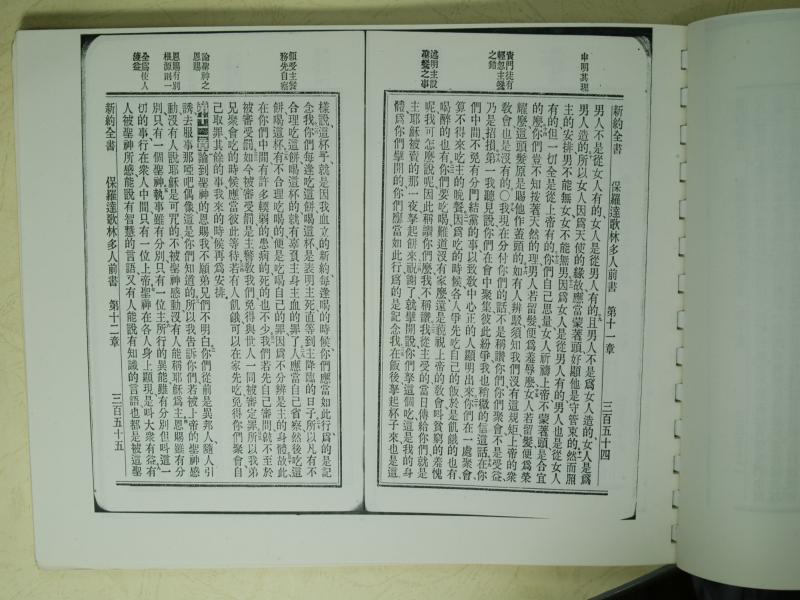 新約全書　保羅達歌林多人前書　第十一章　三百五十四
申明其理
責門徒有輕忽主餐之錯
述明主設聖餐之事
男人不是從女人有的、女人是從男人有的、且男人不是爲女人造的、女人是爲
男人造的、所以女人因爲天使的緣故、應當蒙著頭、好顯他是守管束的、然而照
主的安排、男不能無女、女不能無男、因爲女人是從男人有的、男人也是從女人
有的、但一切全是從上帝有的、你們自己思量、女人祈禱上帝、不蒙著頭、是合宜
的麼、你們豈不知按著天然的理、男人若留髮、便爲羞辱麼、女人若留髮、便爲榮
耀麼、這頭髮原是賜他作蓋頭的、如有人辨駁、須知我們沒有這規矩、上帝的衆
教會也是沒有的、〇我現在分付你們的話、不是稱讚你們、你們聚會不是受益、
乃是招損、第一我聽見說、你們在會中聚集、彼此紛爭、我也稍微的信這話、在你
們中間不免有分門結黨的事、以致敎中心正的人顯明出來、你們在一處聚會、
算不得來吃主的晚餐、因爲吃的時候、各人爭先吃自己的飯、於是飢餓的也有、
喝醉的也有、你們要吃喝、難道沒有家麼、還是藐視上帝的敎會、叫貧窮的羞愧
呢、我可怎麼說呢、因此稱讚你們麼、我不稱讚、我從主受的、當日傳給你們、就是
主耶穌被賣的那一夜、拏起餅來、祝謝了、就擘開、說、你們拏這個吃、這是我的身
體、爲你們擘開的、你們應當如此行、爲的是記念我、在飯後、拏起杯子來、也是這
領受主餐務先自察
論聖神之恩賜
恩賜有別根源則一
全爲使人獲益
樣說、這杯乎、就是因我血立的新約、每逢喝的時候、你們應當如此行、爲的是記
念我、你們每逢吃這餅、喝這杯、是表明主死、直等到主降臨的日子、所以凡有不
合理吃這餅、喝這杯的、就有辜負主身主血的罪了、人應當自己省察、然後吃這
餅、喝這杯、有不合理吃喝的、便是吃喝自己的罪、因爲不分辨是主的身體、故此
在你們中間有許多輭弱的、患病的、死的也不少、我們若先自己審問、就不至於
被審受罰、如今被審受罰、是主警敎我們、免得與世人一同被審定罪、所以我弟
兄聚會吃的時候、應當彼此等待、若有人飢餓、可以在家先吃、免得你們聚會自
己取罪、其餘的事、我來的時候再爲安排、
論到聖神的恩賜、我不願弟兄們不明白、你們從前是異邦人、隨人引
誘、去服事那啞吧偶像、這是你們知道的、所以我告訴你們、若被上帝的聖神感
動、沒有人說耶穌是可咒的、不被聖神感動、沒有人能稱耶穌爲主、恩賜雖有分
別、只有一個聖神、執事雖有分別、只有一位主、所行的異能雖有分別、但叫這一
切的事、行在衆人中間、只有一位上帝、聖神在各人身上顯現、是叫大衆有益、有
人被聖神所感、能說有智慧的言語、又有人能說有知識的言語、也都是被這聖
新約全書　保羅達歌林多人前書　第十二章　三百五十五